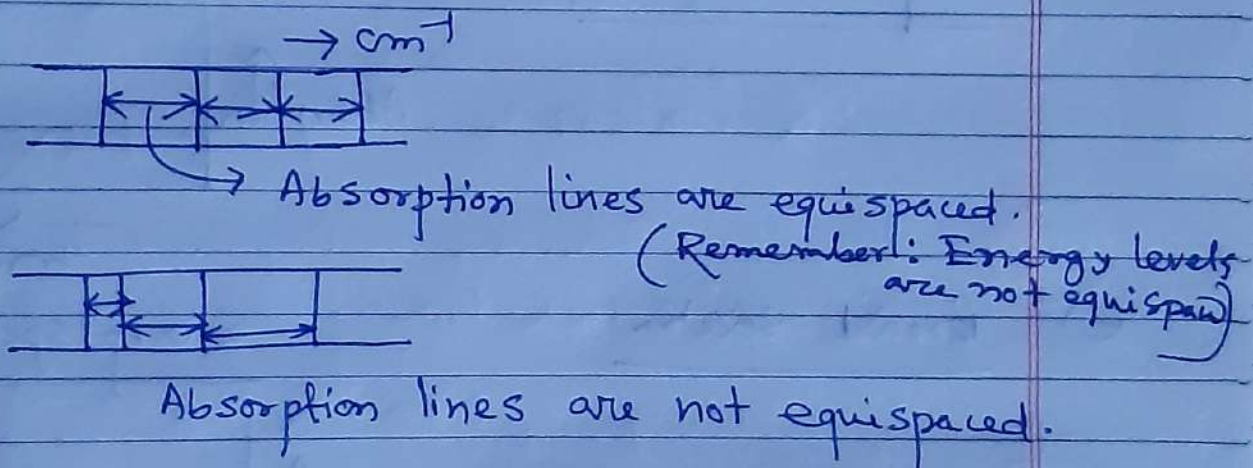 → cm⁻¹
→ Absorption lines are equispaced.
(Remember: Energy levels
are not equispace)
Absorption lines are not equispaced.